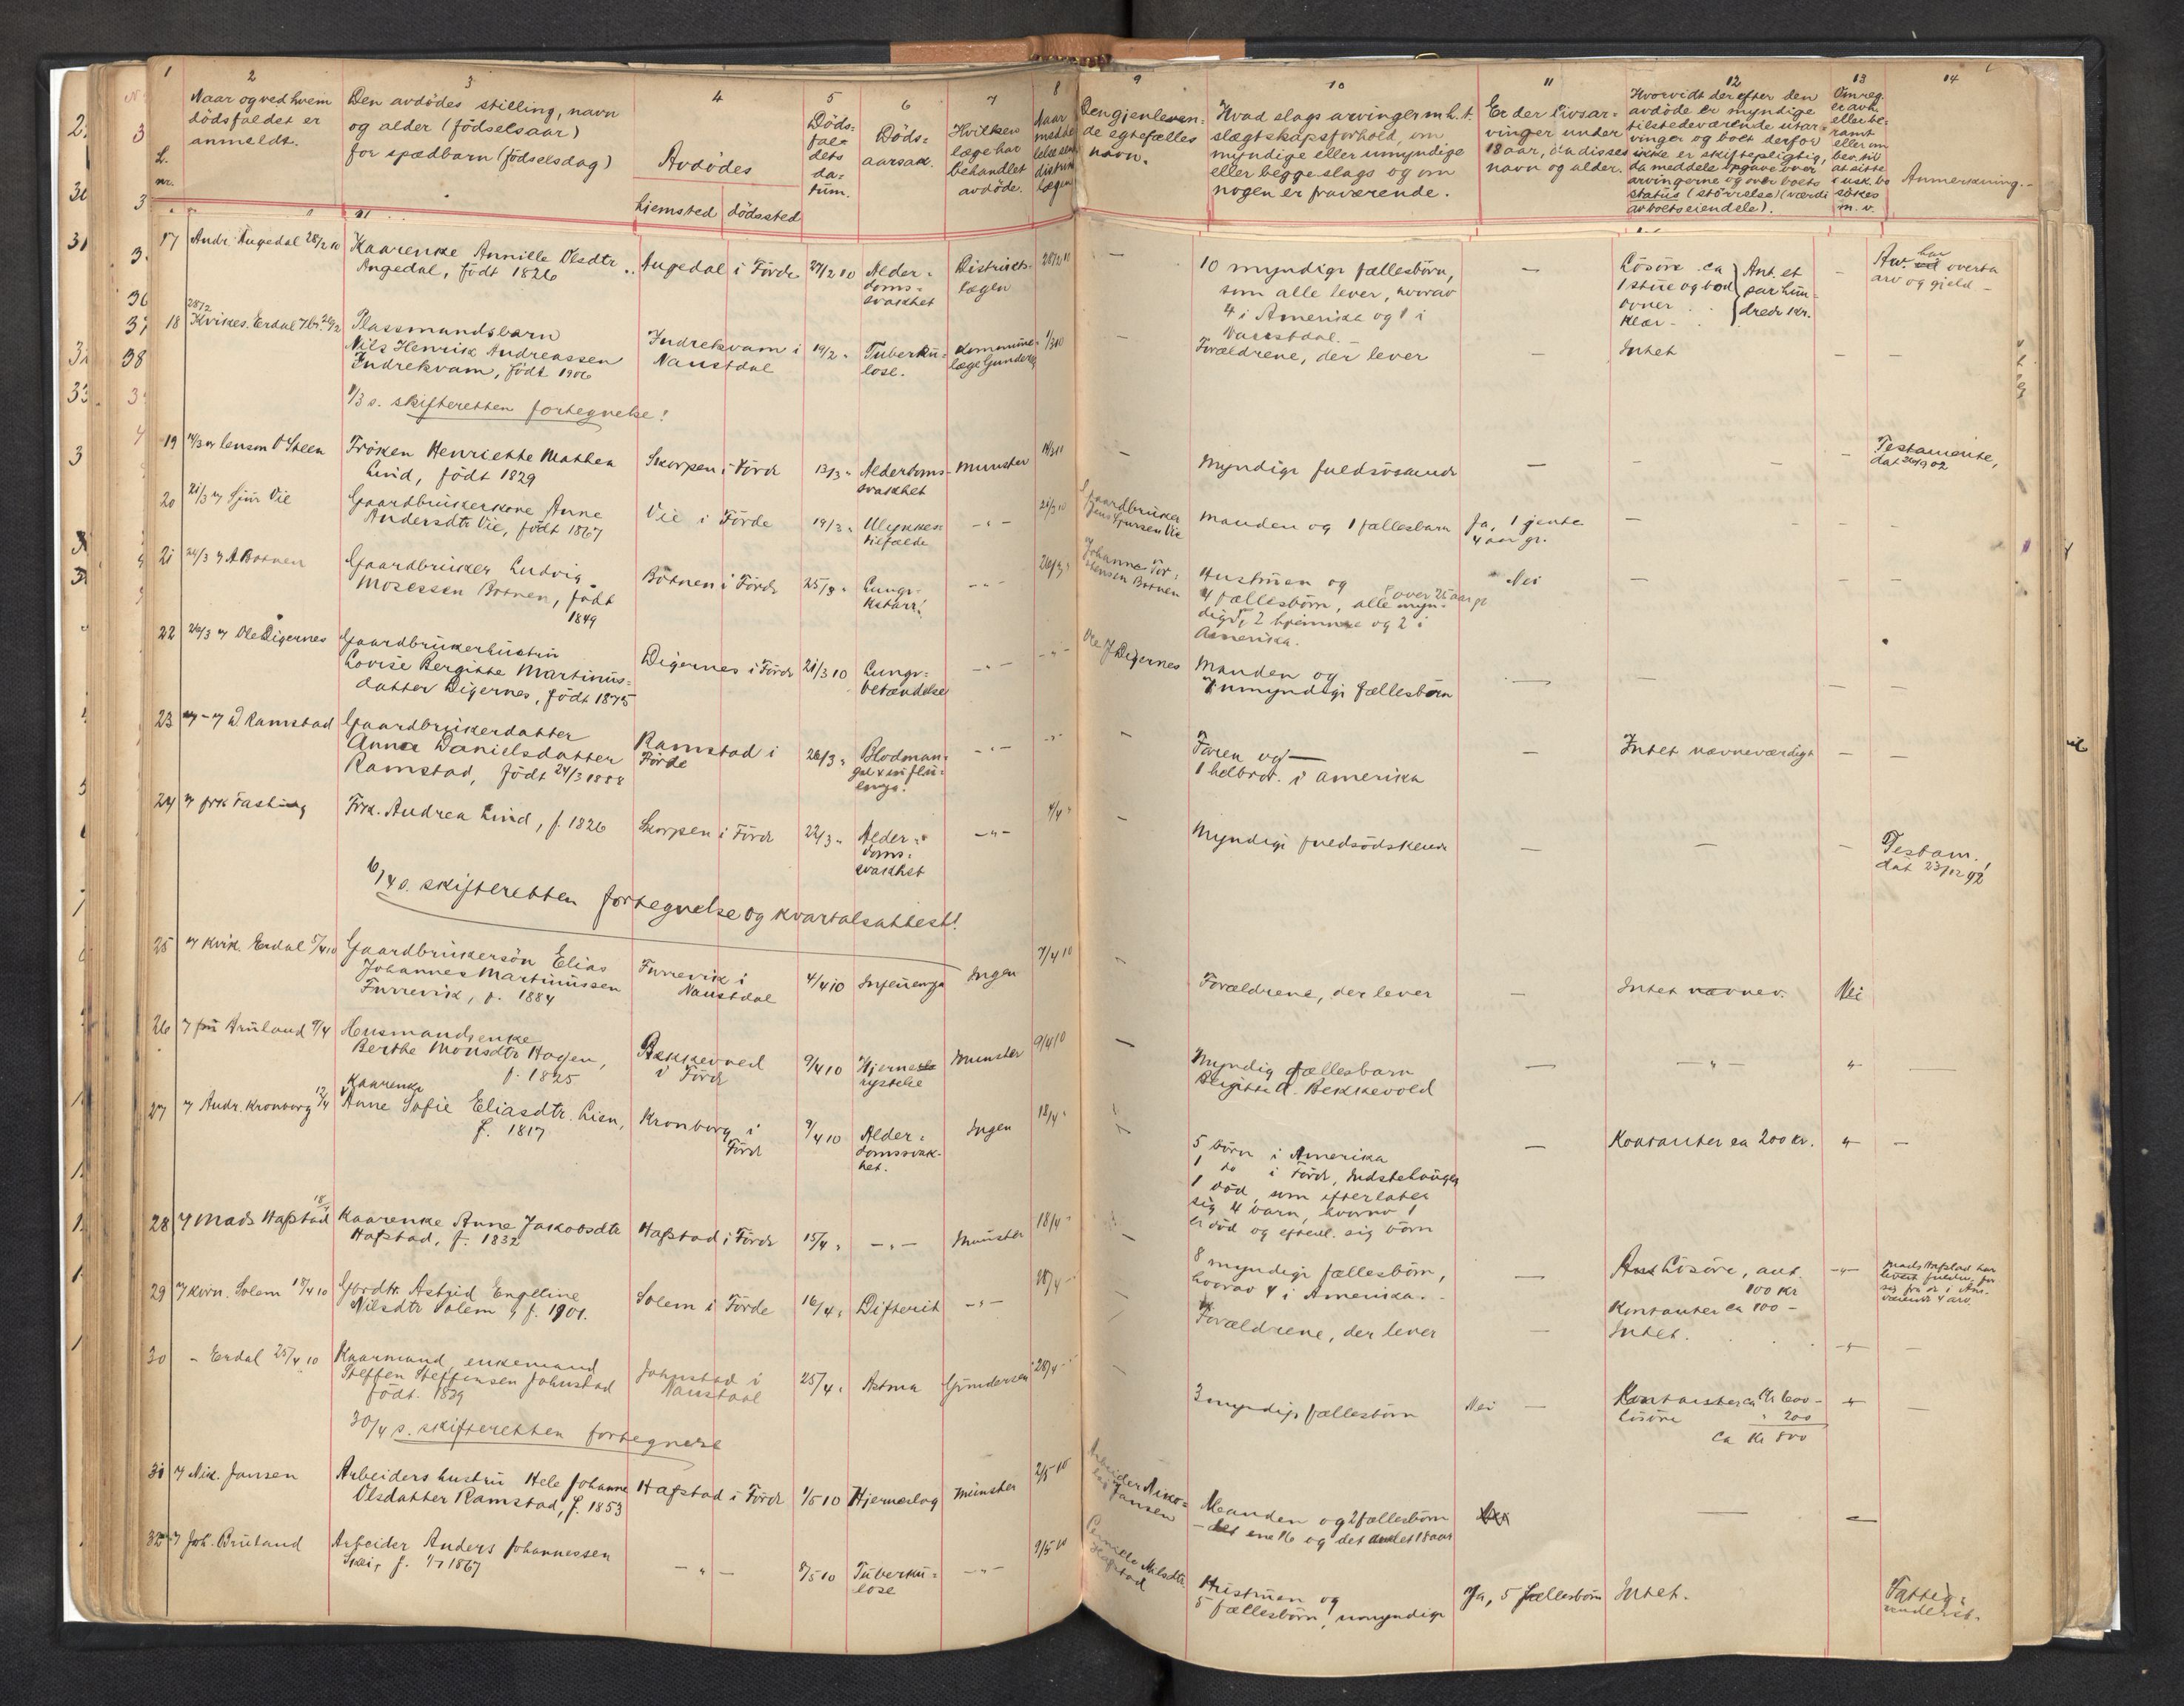 1 2 3 4 5 6 7 8 9 10 11 12 13 14
L. nr.
Naar og ved hvem
dödsfaldet er
anmeldt.
Den avdödes stilling, navn
og alder (födselsaar)
for spædbarn (födselsdag)
Avdödes
hjemsted dödssted
Döds-
fal-
dets
da-
tum.
Döds-
aarsak.
Hvilken
læge har
behandlet
avdöde.
Naar
meddelelse sendt
distrikts
lægen
Den gjenleven-
de egtefælles
navn.
Hvad slags arvinger m.h.t.
slægtskapsforhold, om
myndige eller umyndige
eller begge slags og om
nogen er fraværende.
Er der livsar-
vinger under
18 aar, da disses
navn og alder.
Hvorvidt der efter den
avdöde er myndige
tilstedeværende utar-
vinger og boet derfor
ikke er skiftepligtig,
da meddeles opgave over
arvingerne og over boets
status (störrelse) (værdi
av boets eiendele).
Om reg.
er avh.
eller be-
ramt
eller om
bev. til
at sitte
i usk. bo
sökes
m. v.
Anmerkning.-
17 Andr. Angedal 28/2 10
Kaarenke Annille Olsdtr
Angedal, födt 1826
Angedal i Förde 27/2 10
Alder-
doms-
svakhet
Distrikts-
lægen
28/2 10
—
10 myndige fællesbörn,
som alle lever, hvorav
4 i Amerika og 1 i
Naustdal.-
—
Lösöre ca
1 stue og bod
ovner
klær -
Ant. et
par hun-
drede kr.
-
Arv. har overta
arv og gjeld -
18 28/2 Kvikes. Erdal
Plassmandsbarn
Nils Henrik Andreassen
Indrekvam, födt 1906
Indrekvam i
Naustdal
14/2 "
Tuberku-
lose.
Kommune-
læge Gundersen
1/3 10
-
Forældrene, der lever
—
Intet
— —
1/3 s. skifteretten fortegnelse!
19 14/3 v lensm O Steen
Fröken Henriette Mathea
Lind, födt 1829
Skorpen i Förde 13/3 "
Alderdoms-
svakhet
Munster
14/3 10
—
Myndige fuldsöskende
— - - -
Testamente,
dat 26/9 02
20 21/3 v Sjur Vie
Gaardbrukerkone Anne
Andersdtr Vie, födt 1867
Vie i Förde 19/3 "
Ulykkes-
tilfælde
- " -
21/3 10
Gaardbruker
Jens Sjursen Vie
Manden og 1 fællesbarn
Ja, 1 jente
4 aar gl.
— - -
21 26/3 v A Botnen
Gaardbruker Ludvig
Mosessen Botnen, födt
1849
Botnen i Förde 25/3 "
Lunge-
katarr!
- " -
26/3 "
Johanne Tor-
stensen Botnen
Hustruen og
4 fællesbörn, alle myn-
dige, over 25 aar gl
2 hjemme og 2 i
Amerika.
Nei
— - -
22 26/3 v Ole Digernes
Gaardbrukerhustru
Lovise Bergitte Martinus-
datter Digernes, födt 1875
Digernes i Förde 21/3 10
Lunge-
betændelse
- " -
- " -
Ole J Digernes
Manden og
7 umyndige fællesbörn
— — — —
23 " - v D. Ramstad
Gaardbrukerdatter
Anna Danielsdatter
Ramstad, födt 24/3 1888
Ramstad i
Förde
26/3 "
Blodman-
gel & influ-
enza.
- " -
- " -
—
Faren og —
1 helbror. i Amerika
—
Intet nævneværdigt
— —
24 v frk Fasting
Frk. Andrea Lind, f. 1826
Skorpen i Förde 22/3 "
Alder-
doms-
svakhet
- " -
4/4 "
—
Myndige fuldsödskende
— — —
Testam.!
dat 23/12 92
6/4 s. skifteretten fortegnelse og kvartalsattest!
25 v Kvik. Erdal 5/4 10
Gaardbrukersön Elias
Johannes Martinussen
Furrevik, f. 1884
Furrevik i
Naustdal
4/4 10 Influenza Ingen
7/4 10
—
Forældrene, der lever
—
Intet nævnev.
Nei
26 v fru Bruland 9/4
Husmandsenke
Berthe Monsdtr Hagen,
f. 1825
Bekkevned
i Förde
9/4 10
Hjerne-
rystelse
Munster
9/4 10
—
Myndig fællesbarn
Birgitte A. Bekkevold
— - " - " —
27 v Andr. Kronborg 12/4
Kaarenke
Anne Sofie Eliasdtr. Lien,
f. 1817
Kronborg i
Förde
9/4 10
Alder-
domssvak-
het.
Ingen
12/4 "
5 börn i Amerika
1 do i Förde, Indstehaugen
1 död, som efterlater
sig 4 barn, hvorav 1
er död og efterl. sig börn
—
Kontanter ca 200 kr.
" —
28 v Mads Hafstad 18/4
Kaarenke Anne Jakobsdtr
Hafstad, f. 1832
Hafstad i Förde 15/4 "
- " -
Munster
18/4 -
—
8 myndige fællesbörn,
hvorav 4 i Amerika. -
—
Lösöre, ant.
100 kr
Kontanter ca 100 -
- " -
29 v kirv. Solem 18/4 10
Gbrdtr. Astrid Engeline
Nilsdtr Solem, f. 1901.
Solem i Förde 16/4 " Difterit - " -
18/4 -
—
Forældrene, der lever
—
Intet.
" —
30 - Erdal 25/4 10
Kaarmand, enkemand
Steffen Steffensen Johnstad
födt. 1829
Johnstad i
Naustdal
25/4 " Astma Gundersen
28/4 -
—
3 myndige fællesbörn
Nei —
Kontanter ca Kr 600 -
Lösöre " 200
ca Kr 800
" —
30/4 s. skifteretten fortegnelse
31 v Nik. Jansen
Arbeiders hustru Hele Johanne
Olsdatter Ramstad, f. 1853
Hafstad i Förde 1/5 10 Hjerneslag Munster
2/5 10
Arbeider Niko-
lai Jansen
Manden og 2 fællesbörn
- det ene 16 og det andet 18 aar
— —
32 v Joh. Bruland
Arbeider Anders Johannessen
Skei, f. 1/7 1867
- " -
8/5 10
Tuberku-
lose
- " -
9/5 10
Pernille Nilsdtr.
Hafstad
Hustruen og
5 fællesbörn, umyndige
Ja, 5 fællesbörn
Intet.
Fattig-
underst.